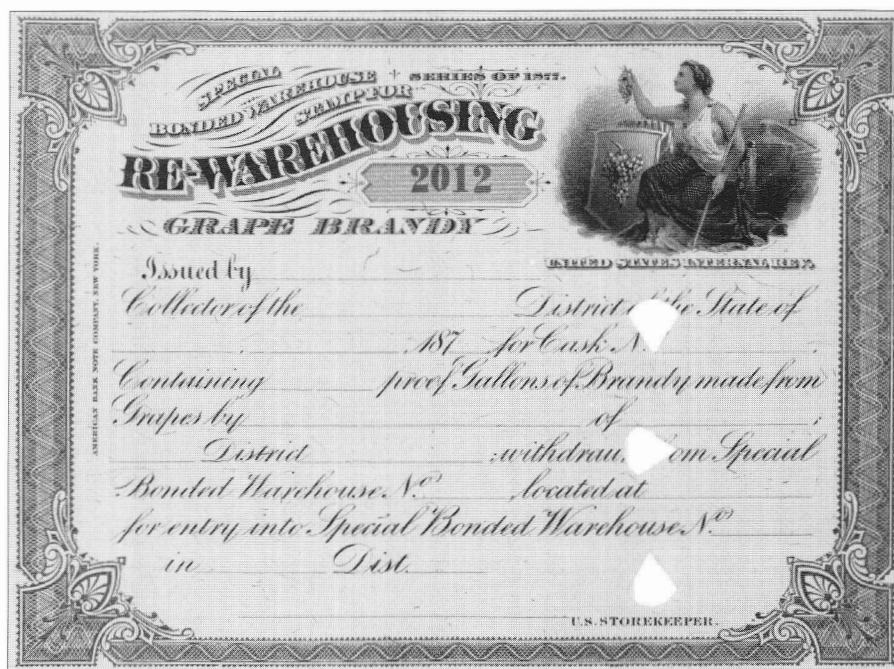 SPECIAL
BONDED WAREHOUSE
STAMP FOR
RE-WAREHOUSING
SERIES OF 1877.
2012
GRAPE BRANDY
UNITED STATES INTERNAL REV.
AMERICAN BANK NOTE COMPANY, NEW YORK.
Issued by
Collector of the District of the State of
187 for Cask No
Containing proof Gallons of Brandy made from
Grapes by of ;
District ; withdrawn from Special
Bonded Warehouse No located at
for entry into Special Bonded Warehouse No
in Dist.
U.S. STOREKEEPER.